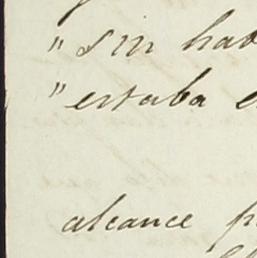 " sin hab
" estaba e
alcance p